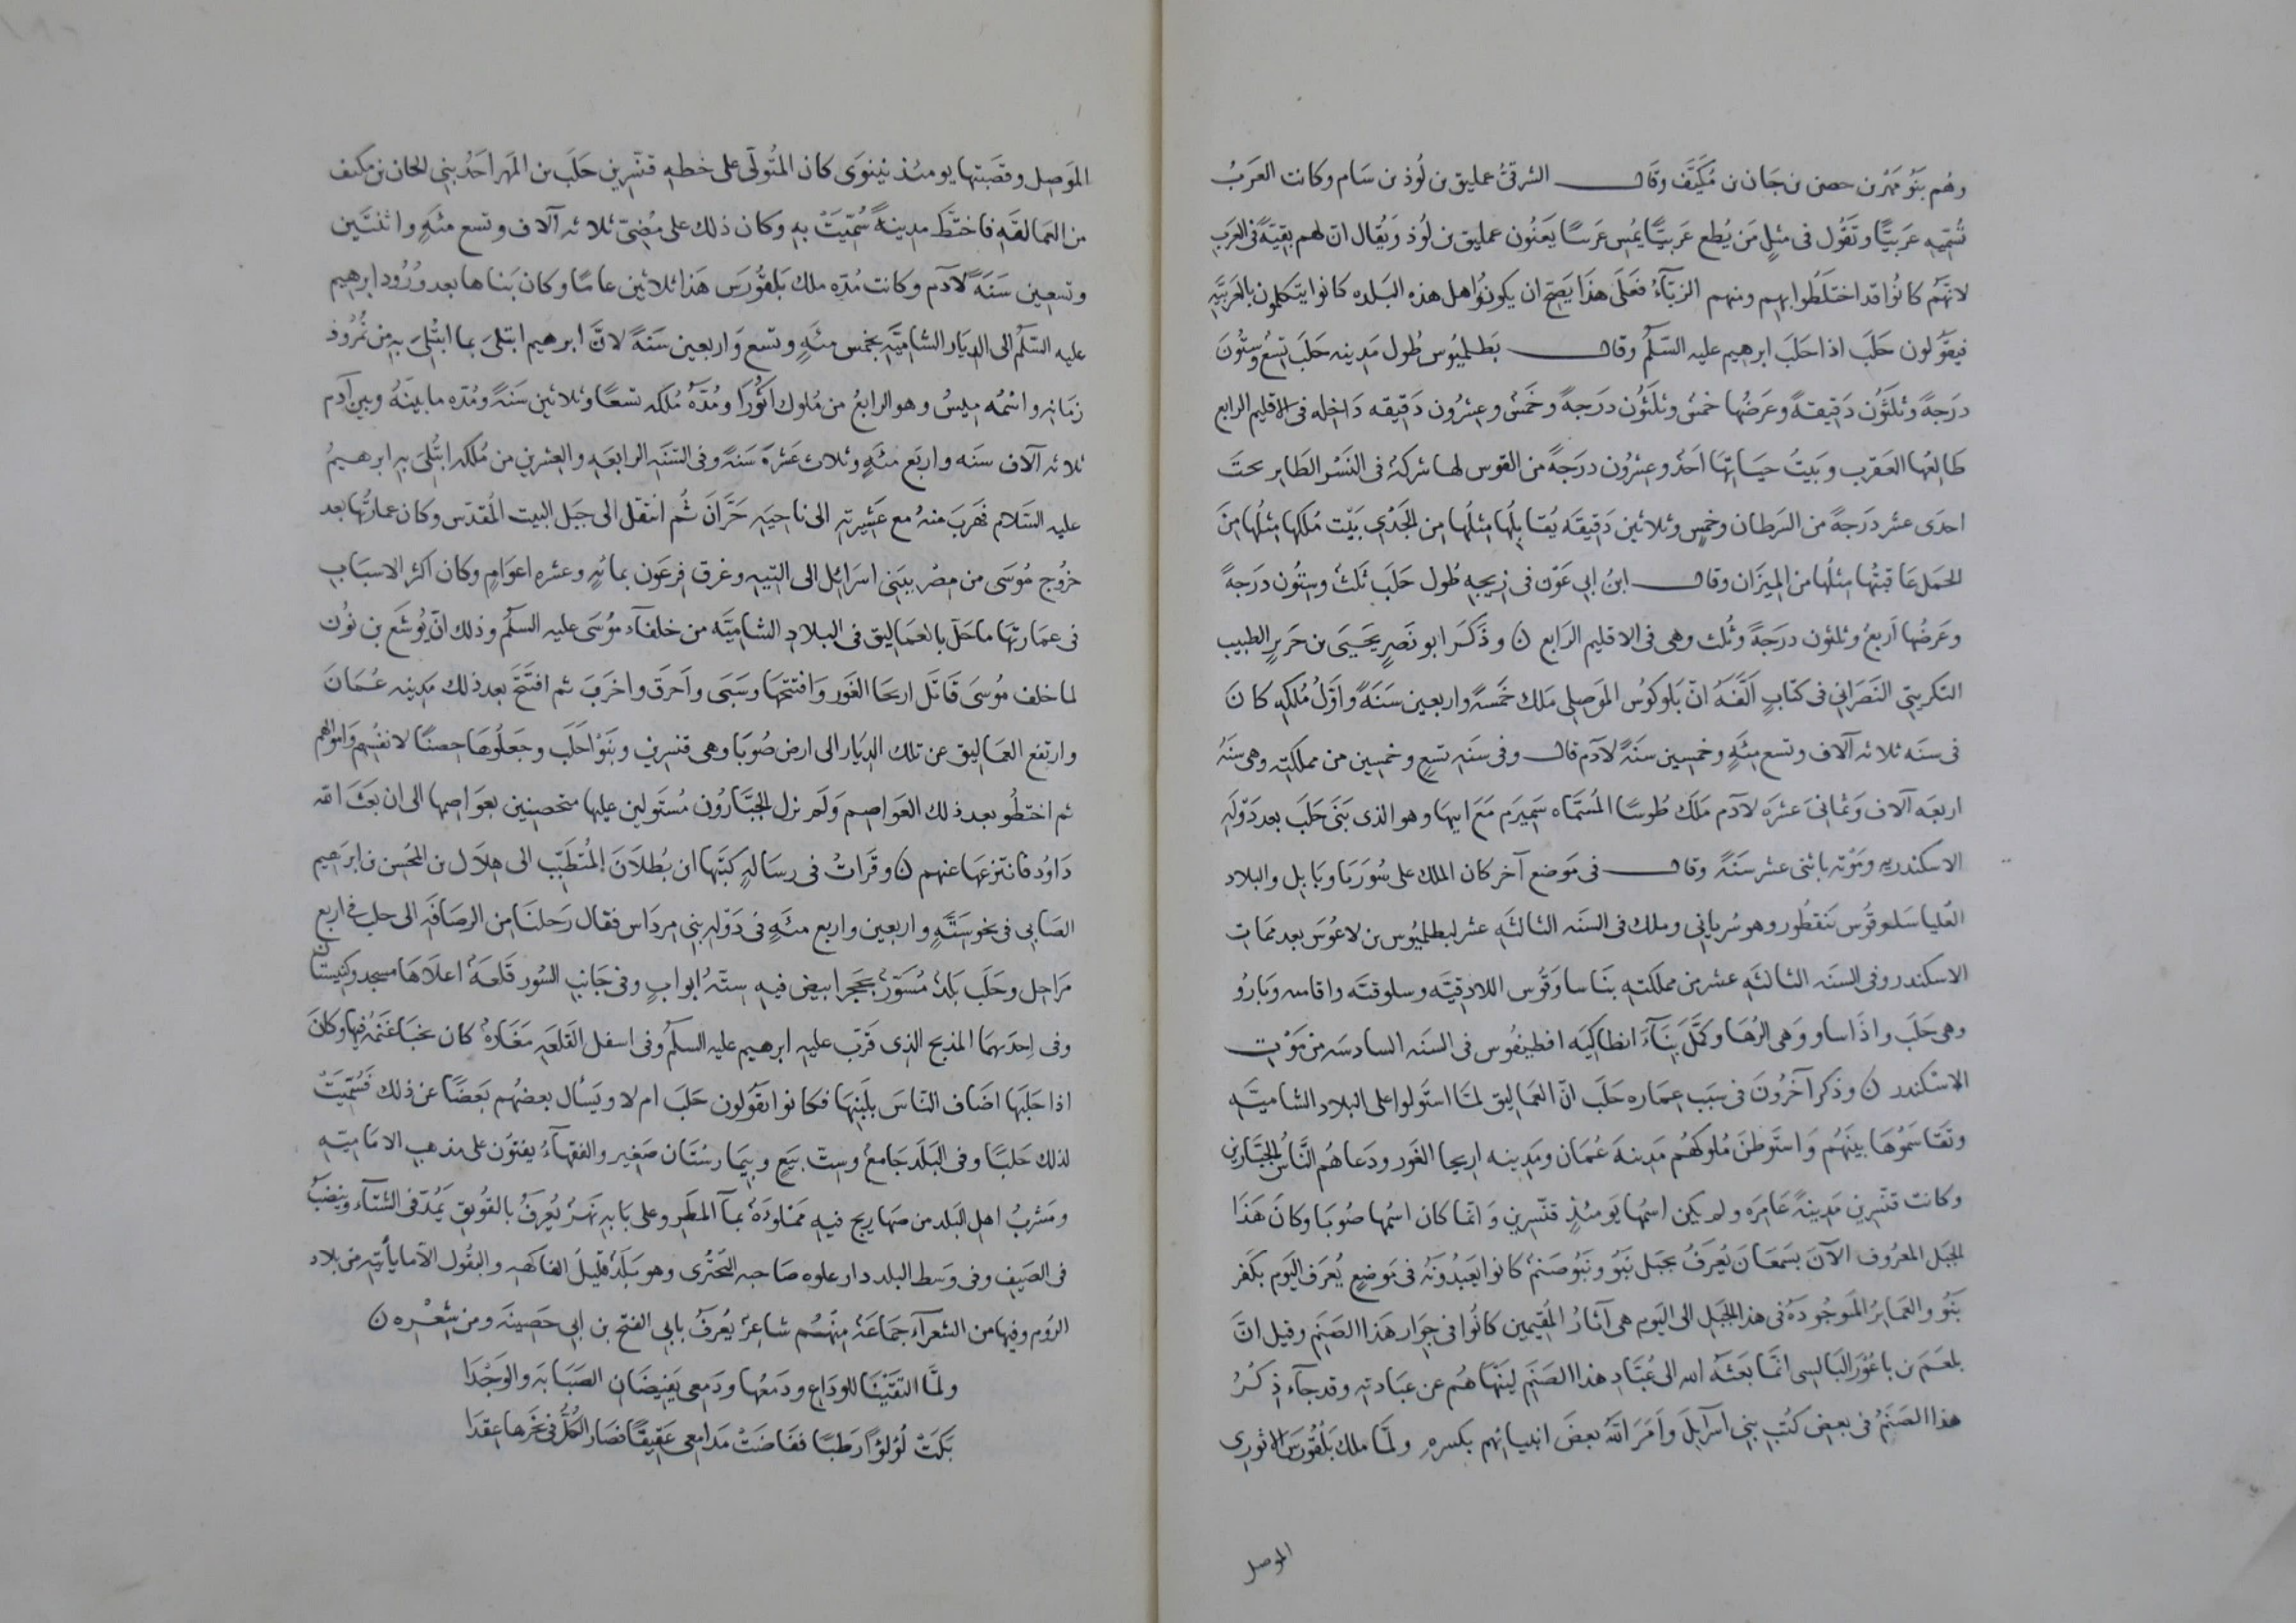 وهُم بَنُو مَهَر بن حصن بن جَان بن مُكيَّف وقال الشرقىُّ عمليق بن لُوذ بن سَام وكانت العَرَبُ
تُسَمّيهِ عَرَيبًا وتَقُول فى مثلٍ مَن يُطع عَريبًا يمُسِ عَريبًا يَعنُون عمليق بن لُوذ وَيُقال ان لهم بقيّةً فى العَرَبِ
لانهّم كانُوا قد اختلَطُوا بهم ومنهم الزبّآءُ فَعَلَى هذَا يَصِحّ ان يكونُوا اهل هذه البَلده كانوا يتكلمون بالعَربيّةِ
فيقُولون حَلَبَ اذا حَلَبَ ابرهيم عليه السّلام وقال بَطلميُوس طُول مَدينه حَلَبَ تسِعُ وستُونَ
درَجةً وثلثُون دَقيقةً وعَرضُها خمسُ وثلَثُون درَجةً وخَمسُ وعشرُون دَقيقه دَاخله فى الاقليم الرابع
طَالعُها العَقرب وبَيتُ حيَاتهَا احَدُ وعشرُون درَجةً من القوس لها شركةٌ فى النَسْر الطَاير تحتَ
احدَى عشر درَجةً من السَرطان وخمسٍ وثلاثين دَقيقَه يُقابلُها مثلُها من الجَدْى بَيْت مُلكها مثلُها مِنَ
الحَمَل عَاقبتُها مثلُها من الميزَان وقال ابنُ ابى عَوْن فى زيجه طُول حَلَبَ ثلثُ وستُون درَجةً
وعَرضُها اَربَعُ وثلثون درَجةً وثُلث وهى فى الاقليم الرَابع ن وذَكَرَ ابو نَصرٍ يَحيَى بن حَريرٍ الطبيب
التكريتى النَصرَانى فى كتابٍ اَلَّفَهُ انّ بَلوكوُس المَوصِلى مَلك خَمسةً واربعين سَنَةً واوّلُ مُلكهِ كانَ
فى سنَه ثلاثه آلاف وتسع مئَهٍ وخمسِين سَنَةً لآدم قال وفى سَنَهِ تسِعٍ وخمسِين من مملكته وهى سنَهُ
اربَعه آلاف وَثمانىَ عشرَه لآدم مَلَك طُوسًا المُسَمَّاه سَميرَم مَعَ ابيهَا وهو الذى بَنَى حَلَبَ بعد دَوْلَهِ
الاسكندر ومَوْته باثنى عشر سَنَةً وقال فى مَوضع آخر كان الملك على سُوريَا وبَابل والبلاد
العُليا سَلوقُوس نَنقطُور وهو سُريانى وملك فى السنَه الثالثَهِ عشر لبطلميُوس بن لاغُوسَ بعد مَمَات
الاسكندر وفى السنَه الثالثَهِ عشر من مملكتهِ بنَا سلوقُوس اللاذقيّه وسلوقيّه وافاميه وبَاروُ
وهى حَلَب واذَاسا وهَى الرُهَا وكَمَّلَ بنَآءَ انطاكيَه انطيغُوس فى السنَه السادسَه من مَوْتِ
الاسكندر ن وذكر آخرُونَ فى سَبَب عمَاره حَلَبَ انّ العَمَاليق لمّا استَولوا على البلاد الشاميّه
وتَقَاسَمُوهَا بينَهُم وَاستَوطَنَ مُلوكهُم مَدينهَ عُمَان ومَدينه اريحا الغَور ودَعَاهُم النّاسُ الجبَّارين
وكانت قنّسرين مَدينَةً عَامرَه ولم يكن اسمُها يَومئذٍ قنّسرين وَانّما كان اسمُها صُوبَا وكان هَذَا
الجبَل المعرُوف الآنَ بسَمعَان يُعرَفُ بجَبل نَبُو ونَبُو صَنَمٌ كانوا يَعبُدُونَهُ فى مَوضعٍ يُعرَف اليَوم بكَفر
نَبُو والعَمايرُ المَوجُودَهُ فى هذا الجَبَلِ الى اليَوم هى آثارُ المُقيمين كانُوا فى جوَار هَذَا الصَنَمِ وقيل انّ
بلعَمَ بن باعُورَ البَالِسى انّما بَعَثَهُ الله الى عُبّادِ هذا الصَنَمِ لينَهَاهُم عن عبَادتهِ وقد جآء ذِكرُ
هذا الصَنَمُ فى بعض كُتُبِ بنى اسرآئيلَ وَاَمَرَ اللهُ بعضَ انبيائهم بكسرهِ ولمّا ملك بَلقُورَسَ الاثورى
الموصل
المَوصِل وقصَبَتها يومئذ نينوَى كان المُتَولّى على خطهِ قنّسرِين حَلَبَ بن المَهر احَدُ بنى الجان بن مكنف
من العَمَالقَهِ فاختَطَّ مدينةً سُمّيَتْ بهِ وكان ذلك على مُضىّ ثلاثه آلاف وتسع مئهٍ واثنتَين
وتسعِين سَنَةً لآدم وكانت مُدّه ملك بَلقُورَسَ هَذا ثلاثين عامًا وكان بَناها بعد وُرُود ابرهيم
عليه السّلام الى الديَار الشاميّهِ بخمس مئَهٍ وتسع وَاربعين سَنَةً لانَّ ابرهيم ابتلىَ بما ابتُلىَ بهِ من نُمرُوذ
زمَانهِ واسْمُه ميسُ وهو الرابعُ من مُلوك اثُورَا ومُدّهُ مُلكه تسعًا وثلاثين سَنَةً ومُدّه ما بينَهُ وبين آدم
ثلاثه آلاف سنَه واربَع مئَهٍ وثلاث عَشرَهَ سَنَةً وفى السَنَه الرابعَهِ والعشرينِ من مُلكه ابتُلىَ بهِ ابرهيمُ
عليه السَلام فهَربَ منهُ مع عَشيرَتهِ الى ناحيَهِ حَرَّانَ ثُم انتقل الى جَبَل البيت المُقدّس وكان عمَارتُها بعد
خرُوج مُوسَى من مصْر ببَنى اسرَائل الى التيهِ وغرق فرعَون بمائهٍ وعشره اعوَامٍ وكان اكثر الاسبَابِ
فى عمَارتهَا ما حَلّ بالعَمَاليق فى البلاد الشاميّه من خلفآء مُوسَى عليه السلام وذلك انّ يُوشَع بن نُون
لما خلف مُوسَى قَاتَل اريحَا الغَور وَافتتحهَا وسَبَى وآَحرَق واخرَبَ ثم افتَتَحَ بعد ذلك مَدينه عُمَانَ
وارتفع العَمَاليق عن تلك الديَار الى ارض صُوبَا وهى قنسرين وبَنَوْا حَلَبَ وجَعلُوهَا حِصنًا لانفُسهِم وَاموَالهِم
ثم اختَطُو بعد ذلك العَوَاصم وَلم تزل الجبَّارُون مُستَولين عليها متحصنين بعوَاصمها الى ان بعَثَ الله
دَاوُد فانتزعَهَا عنهم ن وقَرَاتُ فى رسَالهٍ كتَبَها ابن بُطلاَنَ المُتطَبّب الى هِلاَل بن المحُسن بن ابرَهيم
الصَابى فى نحو ستَّهٍ واربعين واربع مئَهٍ فى دَوْلهِ بنى مردَاس فقال رَحلنَا من الرصَافَهِ الى حلب فى اربع
مَراحِل وحَلَب بَلدٌ مُسَوّرٌ بحَجَرٍ ابيض فيهِ ستّهُ ابوابٍ وفى جَانبِ السُور قَلعَهٌ اعلاَهَا مسجد وكنيستَان
وفى احِدَيهمَا المذبح الذِى قرَّبَ عليهِ ابرهيم عليه السلام وفى اسفل القَلعَهِ مَغَارهٌ كان يخبَأ غَنَمُهُ فيها وكانَ
اذا حَلَبَها اضَاف النَاسَ بلَبَنهَا فكانوا يقُولون حَلَبَ ام لا ويَسأل بعضُهُم بَعَضًا عن ذلك فَسُمّيَتْ
لذلك حَلبًا وفى البَلَد جَامعٌ وستّ بيَعٍ وبيَمارستَان صَغير والفقهآءُ يفتُون على مذهب الامَاميّهِ
ومَشربُ اهل البَلد من صهَاريج فيهِ ممَلوءَهٌ بمآ المَطَرِ وعلى بَابهِ نَهرٌ يُعرَفُ بالقُويق يَمُدّ فى الشتآء وينضبُ
فى الصَيف وفى وسَط البلد دار علوه صَاحبه البَحتُرى وهو بَلدٌ قليلُ الفاكههِ والبقُول الاّ ما يأتيهِ من بلاد
الرُوم وفيها من الشعرآء جَمَاعَهٌ منهُم شاعرٌ يُعرَفُ بابى الفتح بن ابى حَصينَه ومن شِعْره ن
ولمّا التَقَيْنَا للودَاع ودَمعُها ودَمعى يَفيضَان الصَبَابَه والوَجْدَا
بَكَتْ لُؤلؤًا رَطبًا ففَاضَتْ مَدامعى عَقيقًا فصَار الكُلُّ فى نَحرها عقدَا